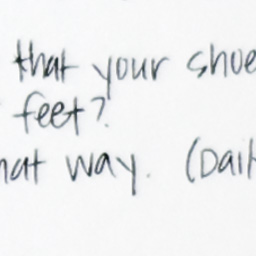 that your shoe
feet?
hat way. (Dail